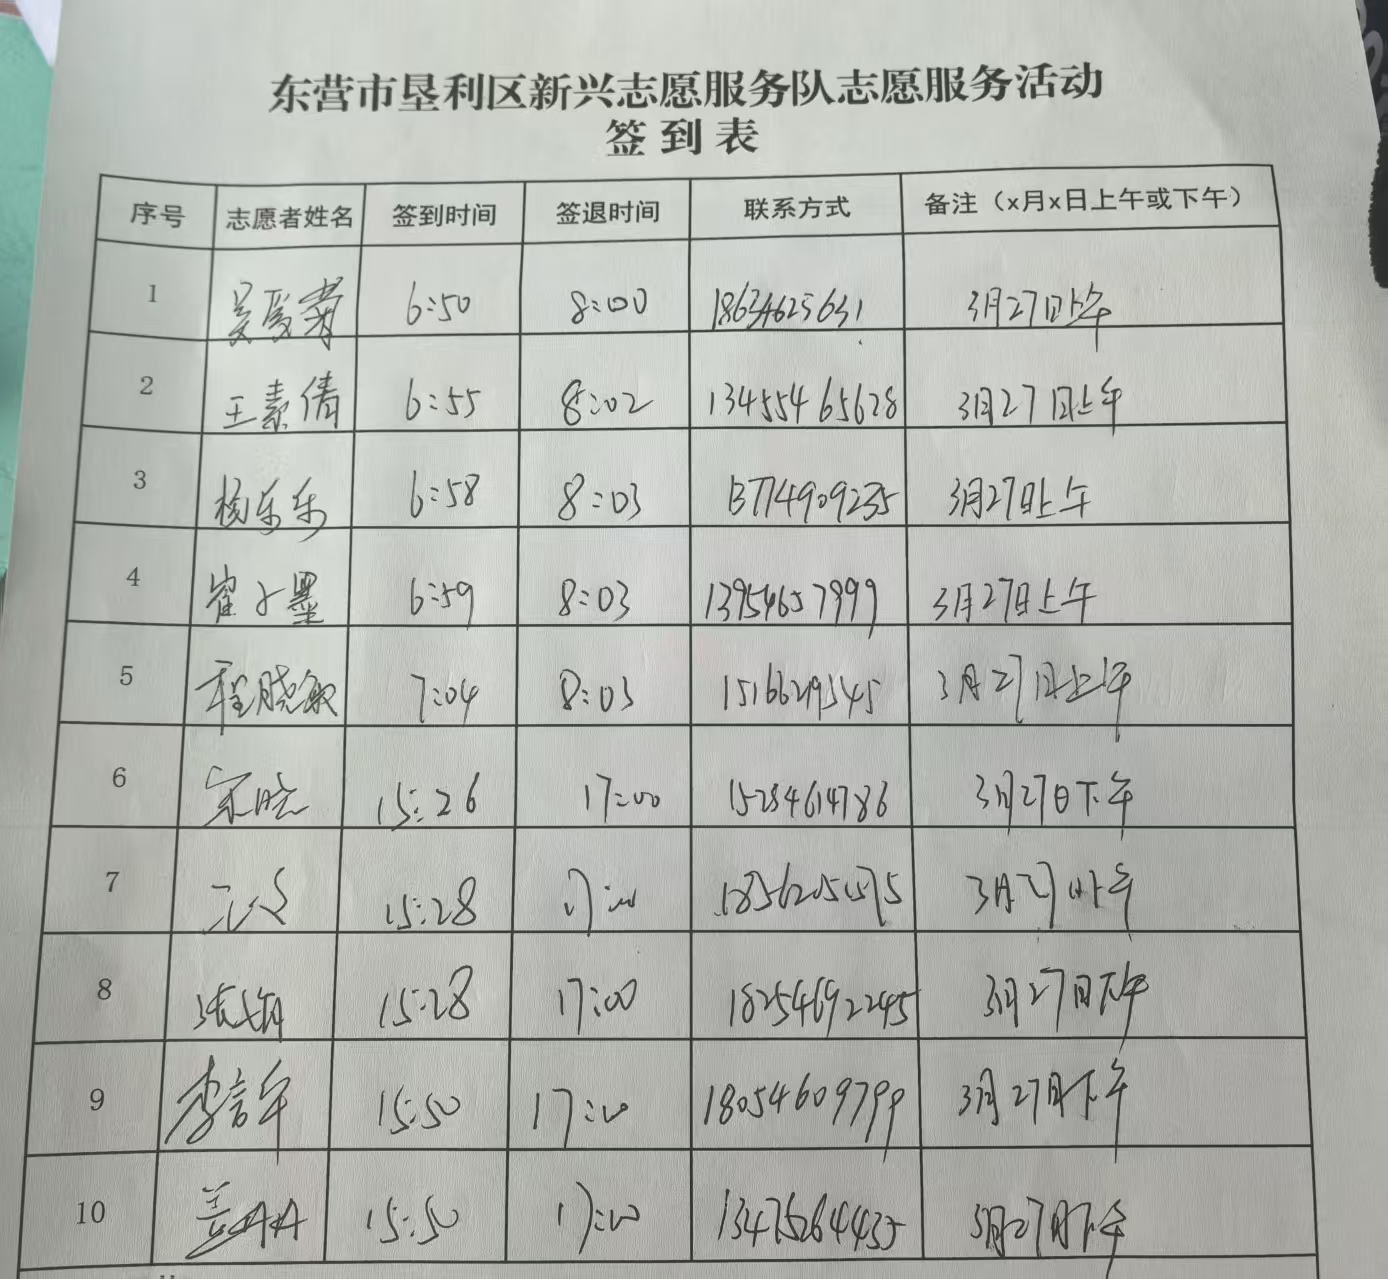 东营市垦利区新兴志愿服务队志愿服务活动
签到表
序号 志愿者姓名 签到时间 签退时间 联系方式 备注（x月x日上午或下午）
1 吴爱荣 6:50 8:00 18634625631 3月27日上午
2 王素倩 6:55 8:02 13455465628 3月27日上午
3 杨乐乐 6:58 8:03 13774909235 3月27日上午
4 崔子墨 6:59 8:03 13954657999 3月27日上午
5 程晓敏 7:04 8:03 15166299545 3月27日上午
6 宋晓 15:26 17:00 15284614786 3月27日下午
7 15:28 17:00 3月27日下午
8 张娟 15:28 17:00 18254692245 3月27日下午
9 李言午 15:50 17:00 18054609799 3月27日下午
10 15:50 17:00 13475264435 3月27日下午